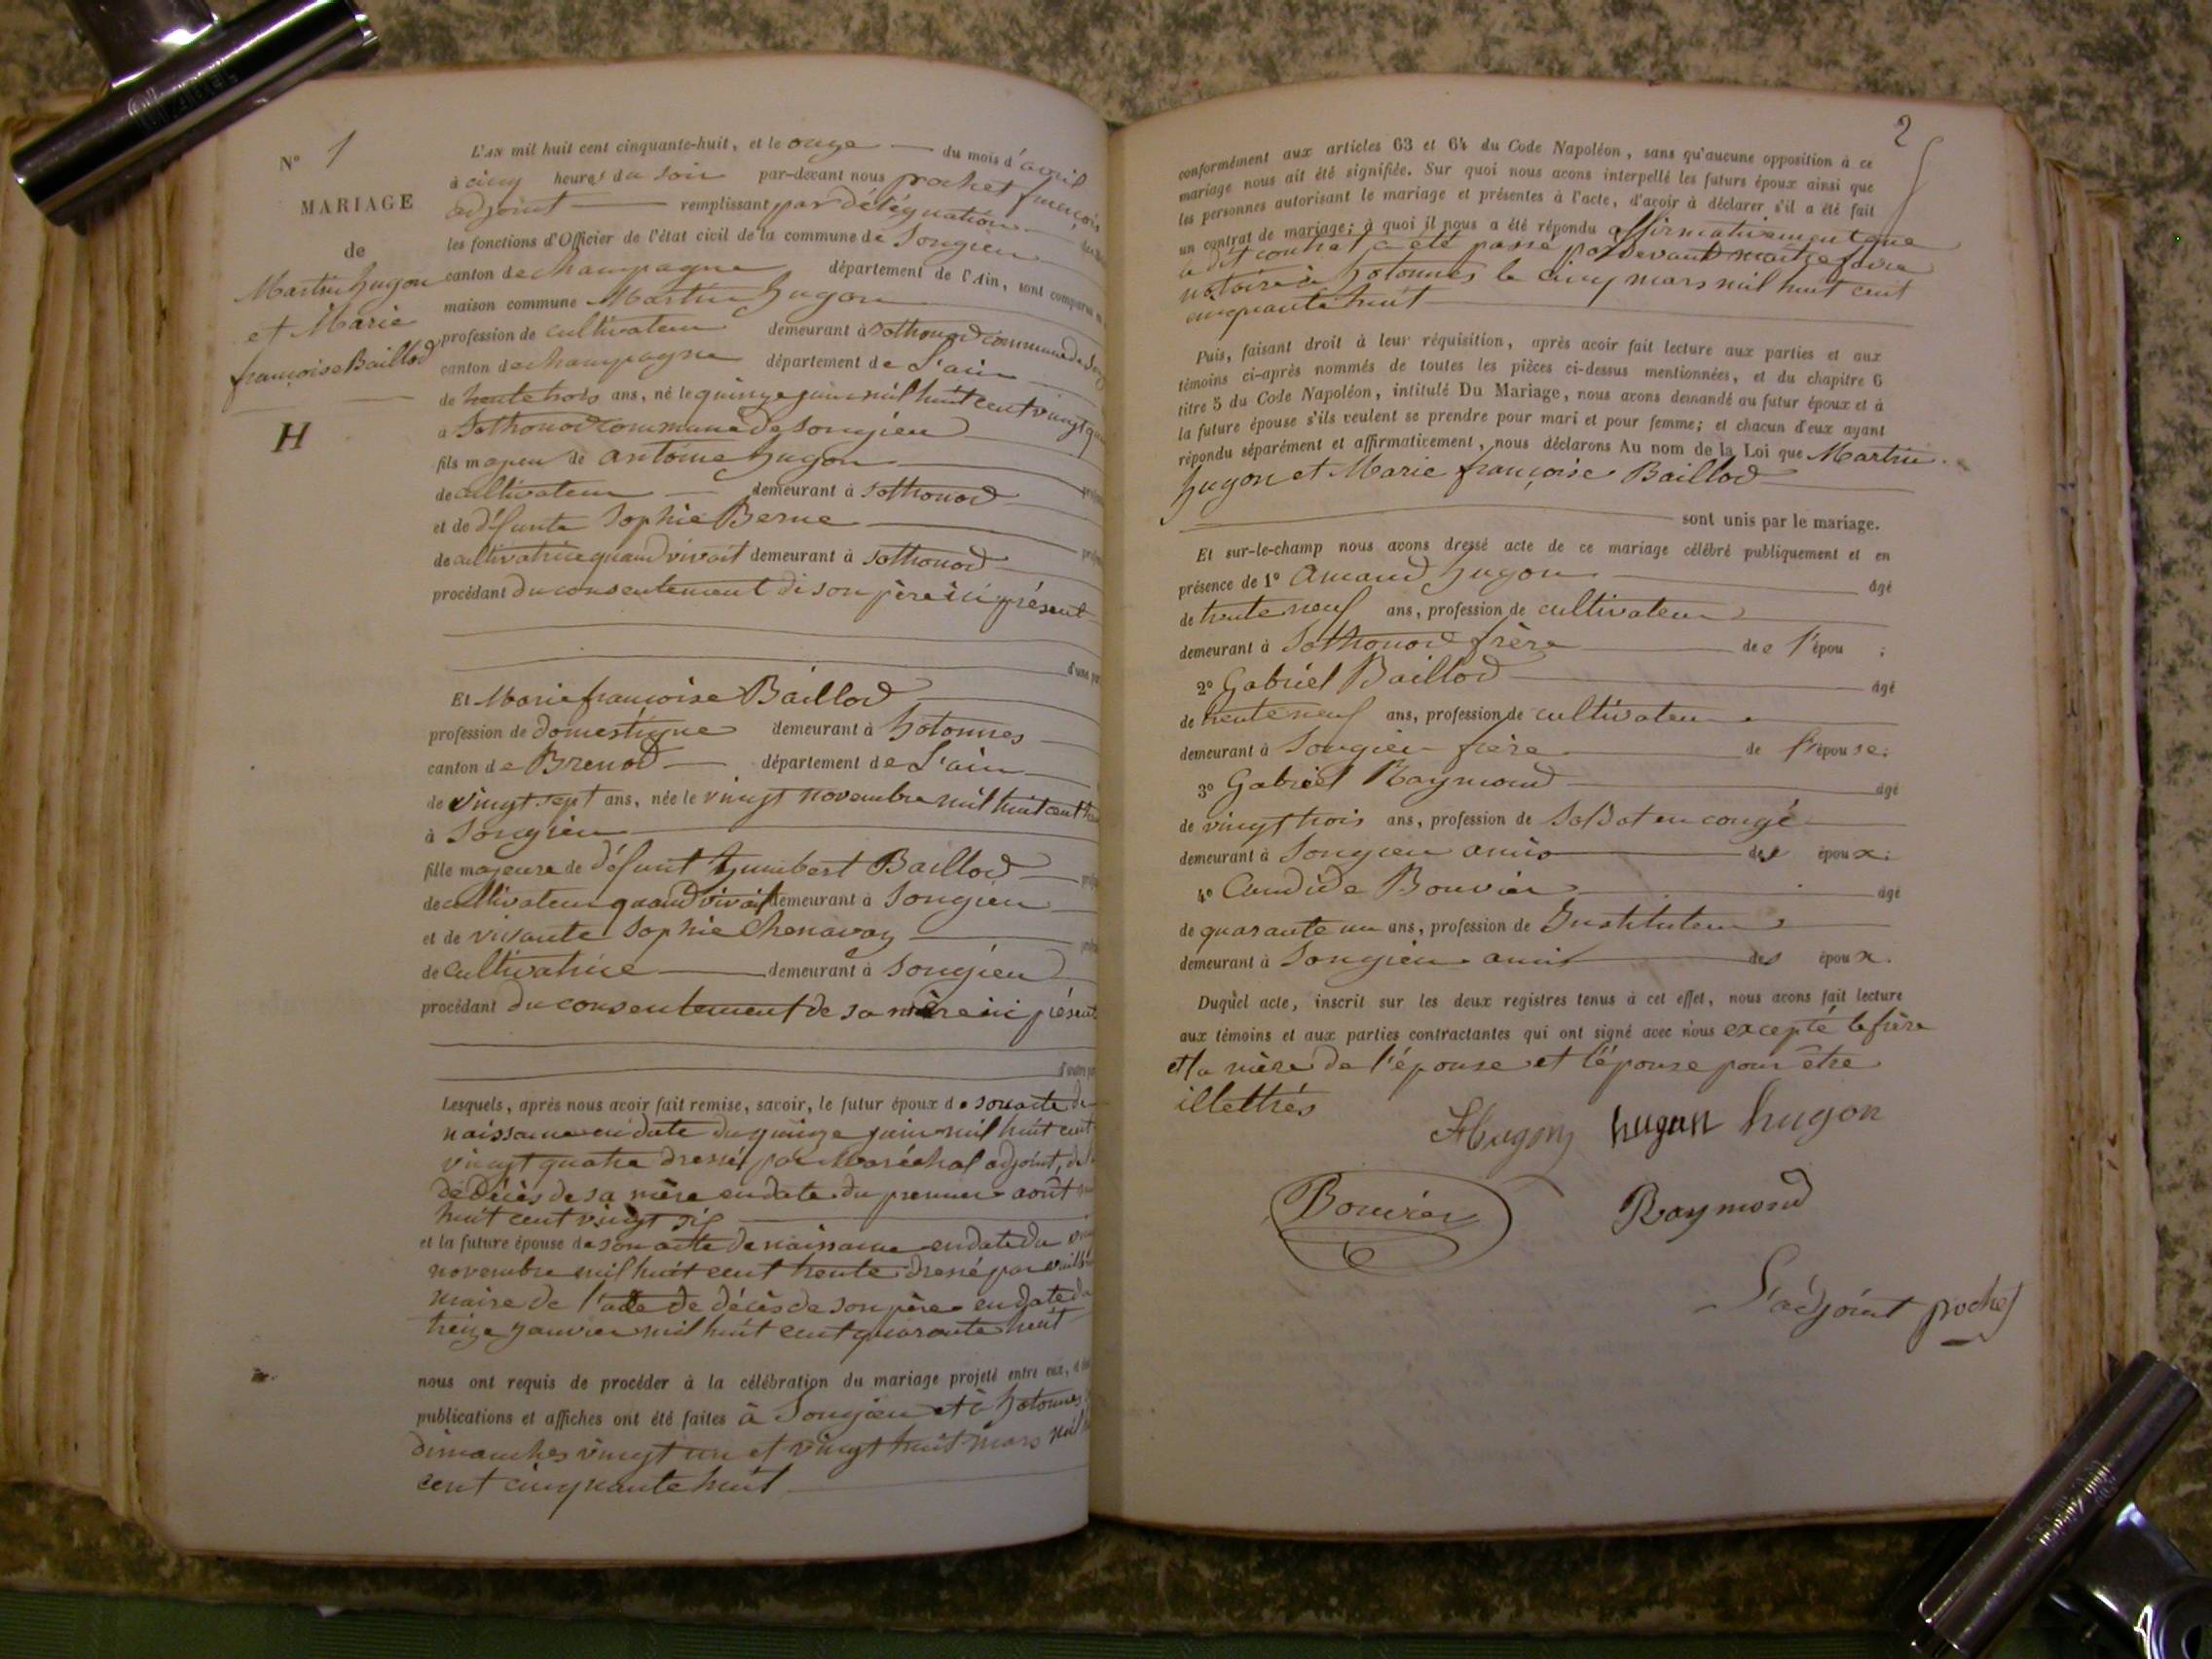 N° 1
MARIAGE
de
Martin hugon
et Marie
françoise Baillod
H
L'AN mil huit cent cinquante-huit, et le onze du mois d'avril
à cinq heures du soir par-devant nous prochet françois
adjoint remplissant par délégation
les fonctions d'Officier de l'état civil de la commune de Songieu
canton de champagne département de l'Ain, sont comparus
maison commune Martin hugon
profession de cultivateur demeurant à Sothonod commune de
canton de champagne département de L'ain
de trente trois ans, né le quinze juin mil huit cent vingt
à Sothonod commune de Songieu
fils majeur de antoine hugon
de cultivateur demeurant à Sothonod
et de défunte Sophie Berne
de cultivatrice quand vivait demeurant à Sothonod
procédant du consentement de son père ici présent
d'une
Et Marie françoise Baillod
profession de domestique demeurant à hotonnes
canton de Brenod département de L'ain
de vingt sept ans, née le vingt novembre mil huit cent
à Songieu
fille majeure de défunt humbert Baillod
de cultivateur quand vivait demeurant à Songieu
et de vivante Sophie Chenavay
de cultivatrice demeurant à Songieu
procédant du consentement de sa mère ici présent
Lesquels, après nous avoir fait remise, savoir, le futur époux de son acte de
naissance en date du quinze juin mil huit cent
vingt quatre dressé par Maréchal adjoint, de
de décès de sa mère en date du premier août
huit cent vingt six
et la future épouse de son acte de naissance en date du
novembre mil huit cent trente dressé par
maire de l'acte de décès de son père en date du
treize janvier mil huit cent quarante huit
nous ont requis de procéder à la célébration du mariage projeté entre eux,
publications et affiches ont été faites à Songieu et à hotonnes
dimanches vingt un et vingt huit mars mil
cent cinquante huit
2
conformément aux articles 63 et 64 du Code Napoléon, sans qu'aucune opposition à ce
mariage nous ait été signifiée. Sur quoi nous avons interpellé les futurs époux ainsi que
les personnes autorisant le mariage et présentes à l'acte, d'avoir à déclarer s'il a été fait
un contrat de mariage; à quoi il nous a été répondu affirmativement que
le dit contrat a été passé pardevant maître favre
notaire à hotonnes le cinq mars mil huit cent
cinquante huit
Puis, faisant droit à leur réquisition, après avoir fait lecture aux parties et aux
témoins ci-après nommés de toutes les pièces ci-dessus mentionnées, et du chapitre 6
titre 5 du Code Napoléon, intitulé Du Mariage, nous avons demandé au futur époux et à
la future épouse s'ils veulent se prendre pour mari et pour femme; et chacun d'eux ayant
répondu séparément et affirmativement, nous déclarons Au nom de la Loi que Martin
hugon et Marie françoise Baillod
sont unis par le mariage.
Et sur-le-champ nous avons dressé acte de ce mariage célébré publiquement et en
présence de 1° Amand hugon âgé
de trente neuf ans, profession de cultivateur
demeurant à Sothonod frère de l'épou ;
2° Gabriel Baillod âgé
de trente neuf ans, profession de cultivateur
demeurant à Songieu frère de l'épouse;
3° Gabriel Raymond âgé
de vingt trois ans, profession de soldat en congé
demeurant à Songieu amis des époux;
4° Candide Bouvier âgé
de quarante un ans, profession de Instituteur
demeurant à Songieu ami des époux.
Duquel acte, inscrit sur les deux registres tenus à cet effet, nous avons fait lecture
aux témoins et aux parties contractantes qui ont signé avec nous excepté le frère
et la mère de l'épouse et l'épouse pour être
illettrés
Hugon hugon hugon
Bouvier Raymond
L'adjoint prochet